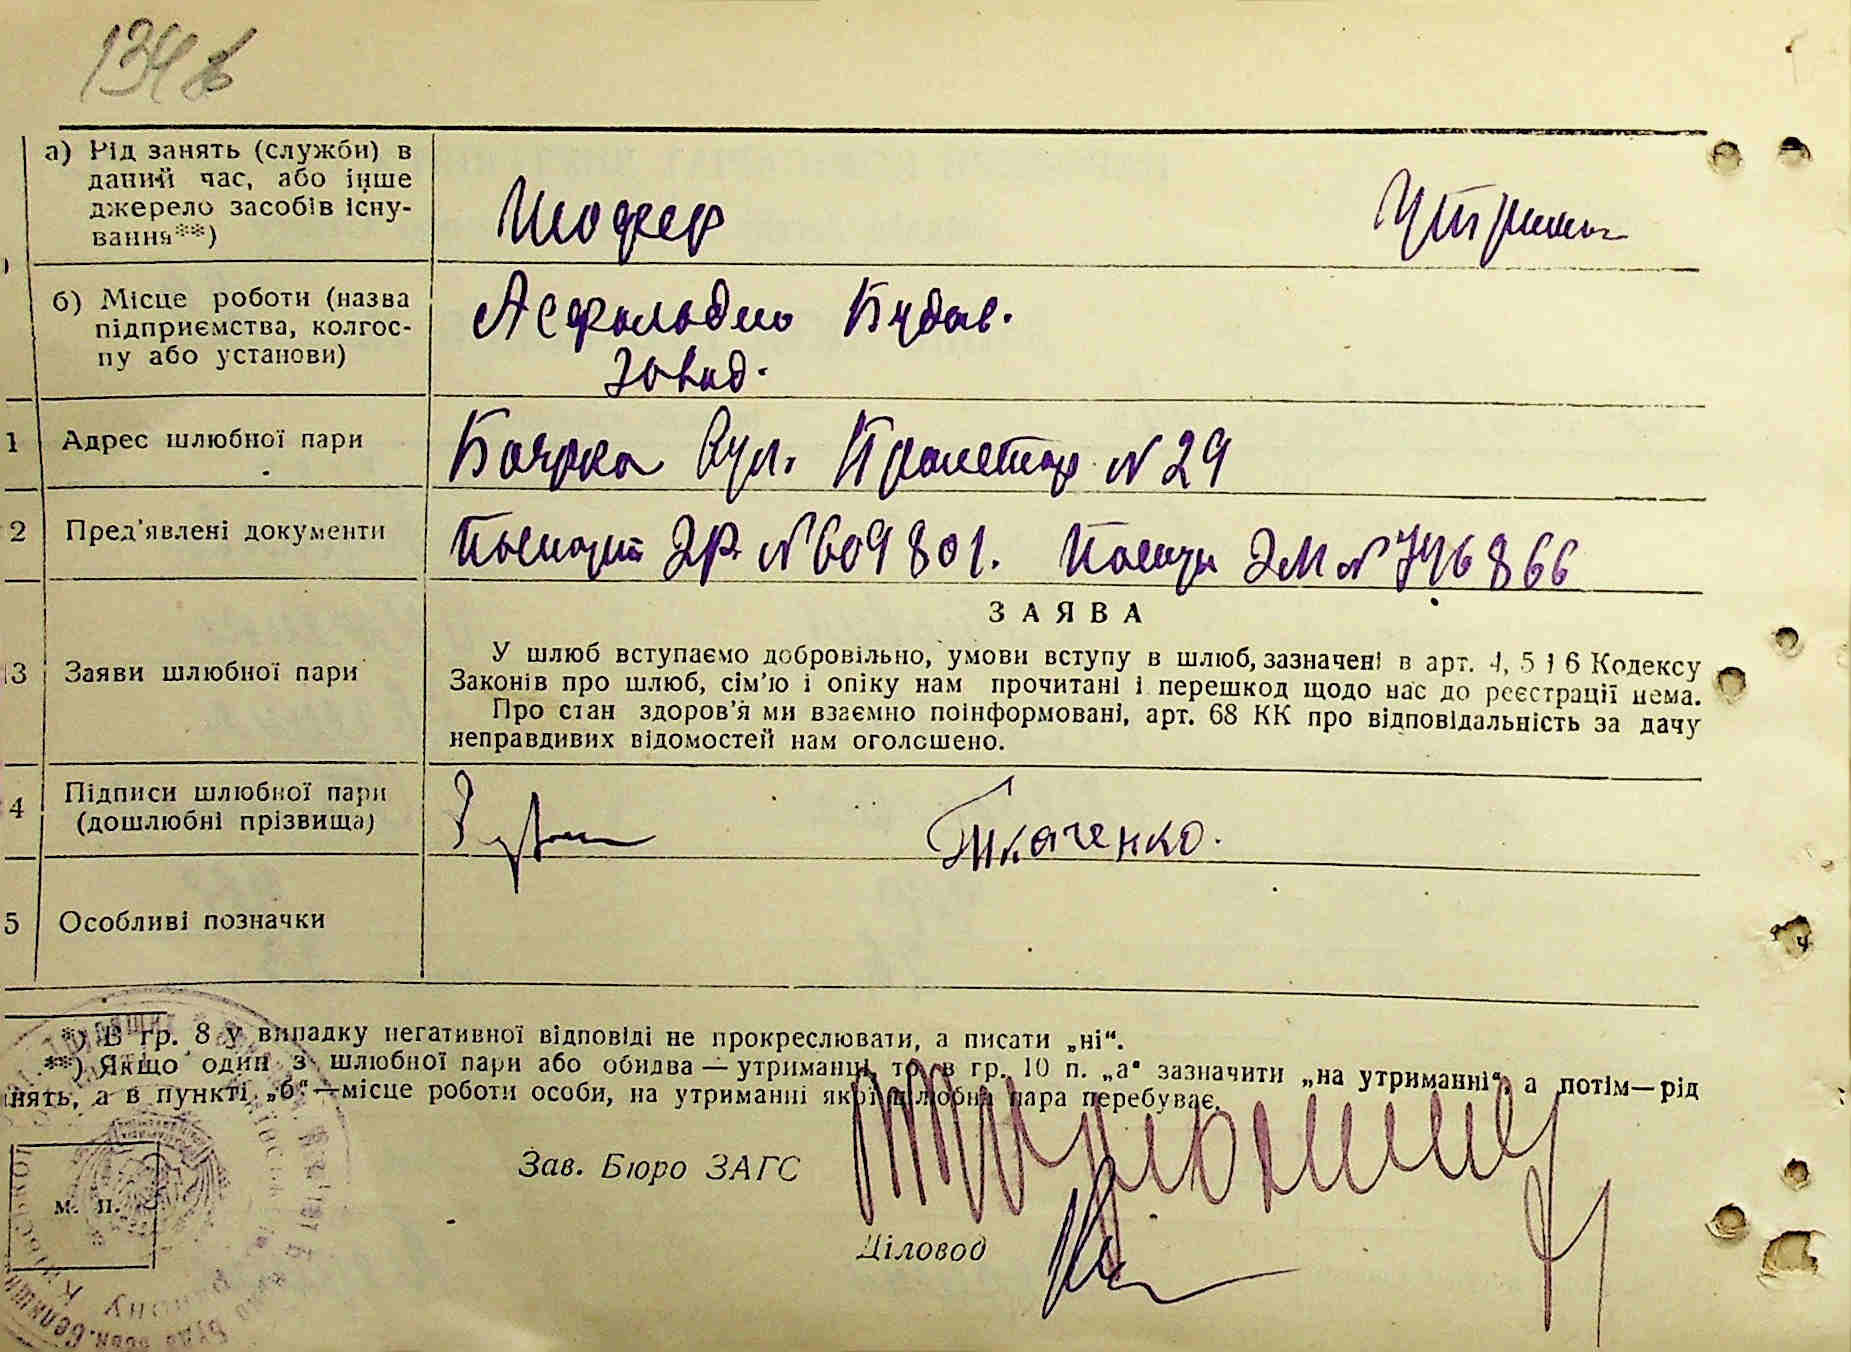 134 в
а) Рід занять (служби) в
даний час, або інше
джерело засобів існу-
вання**)
Шофер
Утриман
б) Місце роботи (назва
підприємства, колгос-
пу або установи)
Асфальодно Будов.
Завод.
1 Адрес шлюбної пари
Боярка Вул. Пролетар. № 29
2 Пред'явлені документи
Паспорт ЭР № 609801. Паспорт ЭМ № 746866
ЗАЯВА
13 Заяви шлюбної пари
У шлюб вступаємо добровільно, умови вступу в шлюб, зазначені в арт. 4, 5 і 6 Кодексу
Законів про шлюб, сім'ю і опіку нам прочитані і перешкод щодо нас до реєстрації нема.
Про стан здоров'я ми взаємно поінформовані, арт. 68 КК про відповідальність за дачу
неправдивих відомостей нам оголошено.
4 Підписи шлюбної пари
(дошлюбні прізвища)
Ткаченко.
5 Особливі позначки
*) В гр. 8 у випадку негативної відповіді не прокреслювати, а писати „ні“.
**) Якщо один з шлюбної пари або обидва — утриманці, то в гр. 10 п. „а“ зазначити „на утриманні“, а потім—рід
нять, а в пункті „б“—місце роботи особи, на утриманні якої шлюбна пара перебуває.
Зав. Бюро ЗАГС
м. п.
Діловод